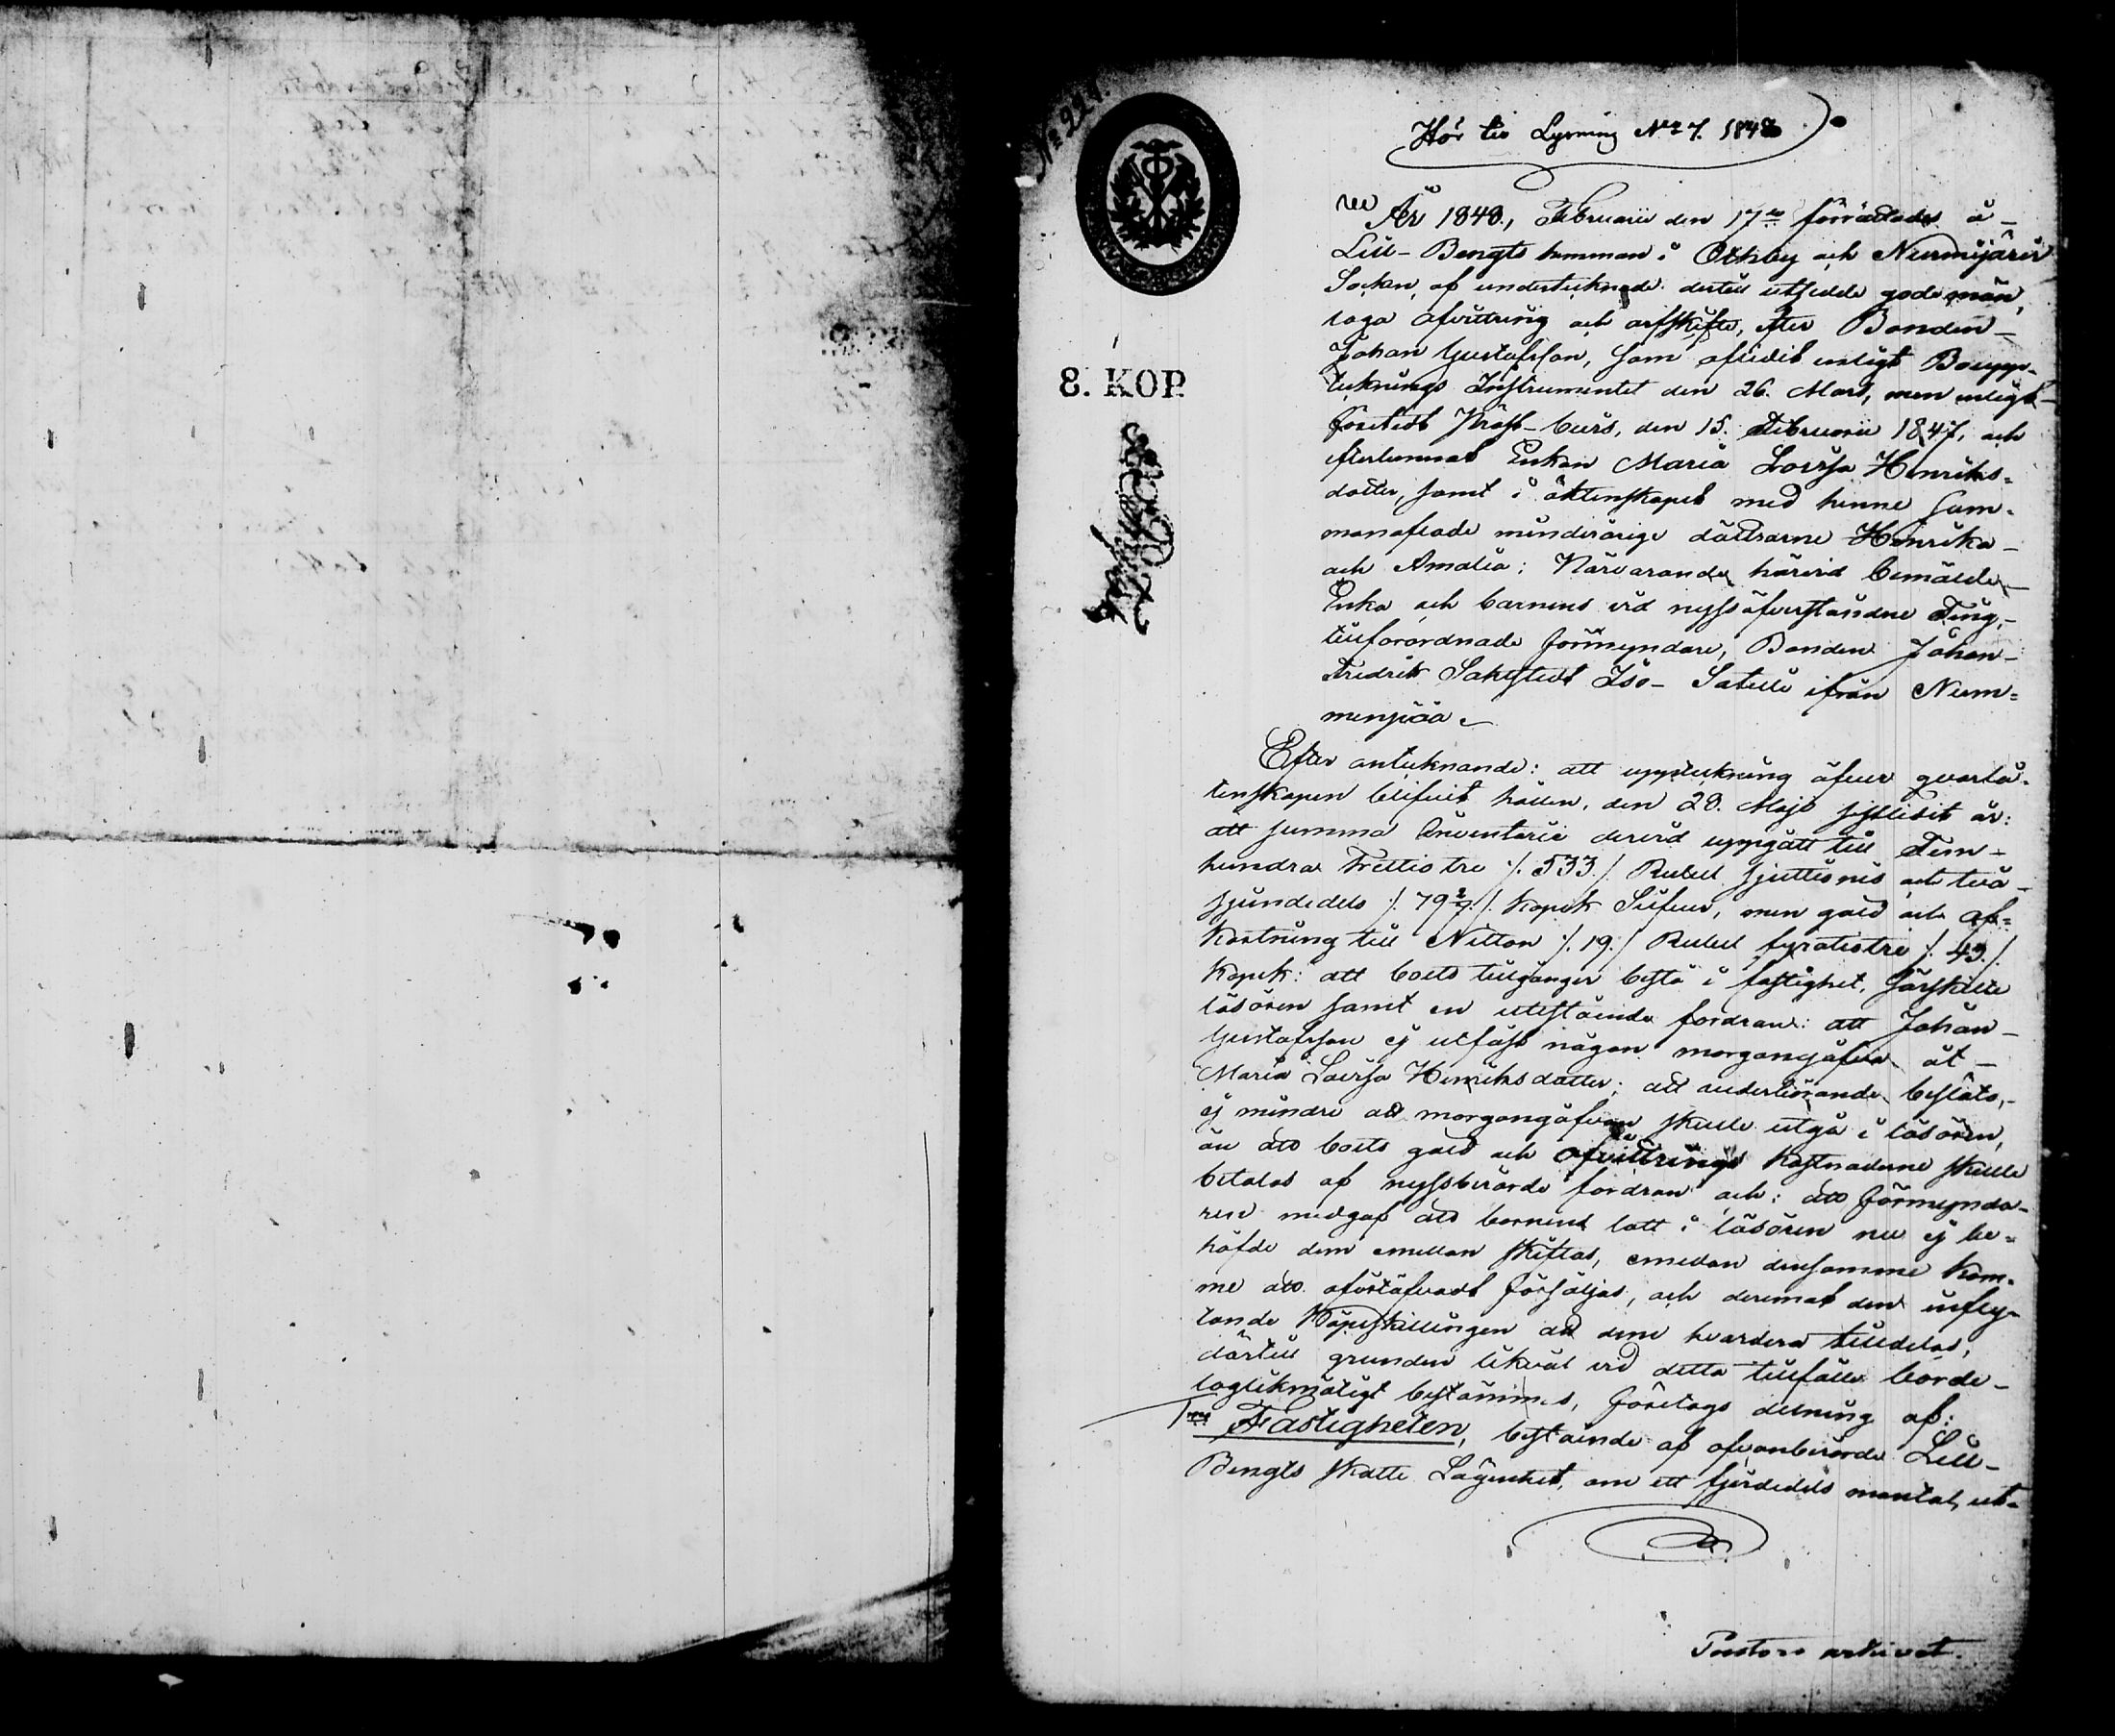 No 221.
Hör till Lysning No 7. 1848
År 1848, Februarii den 17de förrättades å
Lill-Bengts hemman i Ochby och Nurmijärvi
Socken, af undertecknade dertill utsedde gode män,
laga afvittring och arfskifte, efter Bonden
Johan Gustafsson, som aflidit enligt Boupp-
tecknings Instrumentet den 26. Mars, men enligt
företedt Präst-bevis, den 15. Februarii 1847, och
efterlemnat Enkan Maria Lovisa Henriks-
dotter, samt i äktenskapet med henne sam-
manaflade minderårige döttrarne Henrika
och Amalia; Närvarande härvid bemälde
Enka och barnens vid nyssöfverståndne Ting,
tillförordnade förmyndare, Bonden Johan
Fredrik Sahlstedt Iso-Seteli ifrån Num-
menpää.
Efter antecknande: att uppteckning öfver qvarlå-
tenskapen blifvit hållen, den 28. Maji sistledit år:
att summa Inventarii dervid uppgått till Fem-
hundra Trettiotre /. 533./ Rubel sjuttionio och två
sjundedels /. 79 2/7./ Kopek Silfver, men gäld och af-
kortning till Nitton /. 19./ Rubel fyratiotre /. 43./
Kopek: att boets tillgångar bestå i fastighet, särskilte
lösören samt en utestående fordran: att Johan
Gustafsson ej utfäst någon morgongåfva åt
Maria Lovisa Henriksdotter; att vederbörande beslöto,
ej mindre att morgongåfvan skulle utgå i lösören,
än att boets gäld och afvittrings kostnaderne skulle
betalas af nyssberörde fordran och: att förmynda-
ren medgaf att barnens lott i lösören nu ej be-
höfde dem emellan skiftas, emedan densamma kom-
me att oförtöfvadt försäljas, och deremot den infly-
tande Köpeskillingen att dem hvardera tilldelas,
därtill grunden likväl vid detta tillfälle borde
laglikmätigt bestämmas, företogs delning af:
1mo Fastigheten, bestående af ofvanberörde Lill-
Bengts skatte Lägenhet, om ett fjerdedels mantal, ut-
8. KOP.
Pastors arkivet.